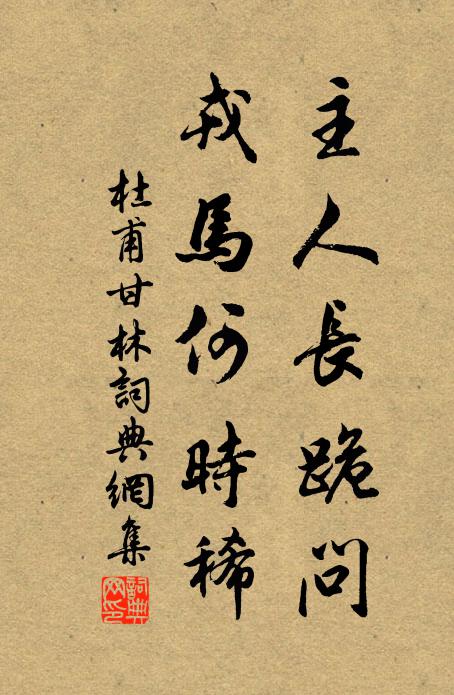 主人長跪問
戎馬何時稀
杜甫甘林詞典網集
詞典网印